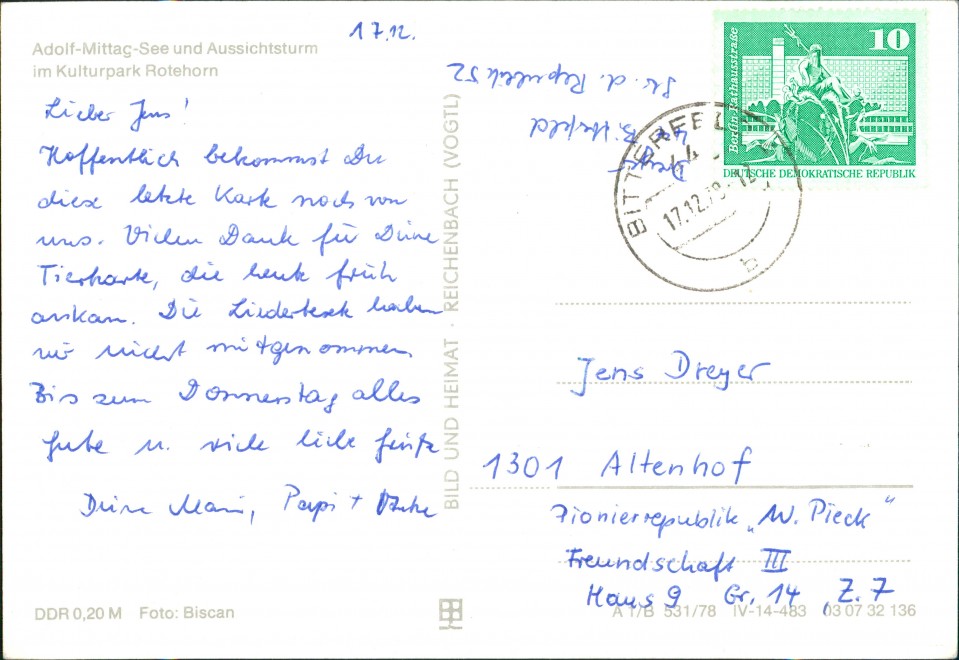 17.12.
Adolf-Mittag-See und Aussichtsturm
im Kulturpark Rotehorn
Lieber Jens!
Hoffentlich bekommst Du
diese letzte Karte noch von
uns. Vielen Dank für Deine
Tierkarte, die heute früh
ankam. Die Liedertexte haben
wir nicht mitgenommen.
Bis zum Donnerstag alles
Gute u. viele liebe Grüße
Deine Mami, Papi +
DDR 0,20 M Foto: Biscan
BILD UND HEIMAT · REICHENBACH (VOGTL)
Dreyer
44 Bitterfeld
Str. d. Republik 52
10
Berlin, Rathausstraße
DEUTSCHE DEMOKRATISCHE REPUBLIK
BITTERFELD
17.12.79-12
b
Jens Dreyer
1301 Altenhof
Pionierrepublik „W. Pieck“
Freundschaft III
Haus 9 Gr. 14, Z. 7
A 1/B 531/78 IV-14-483 03 07 32 136